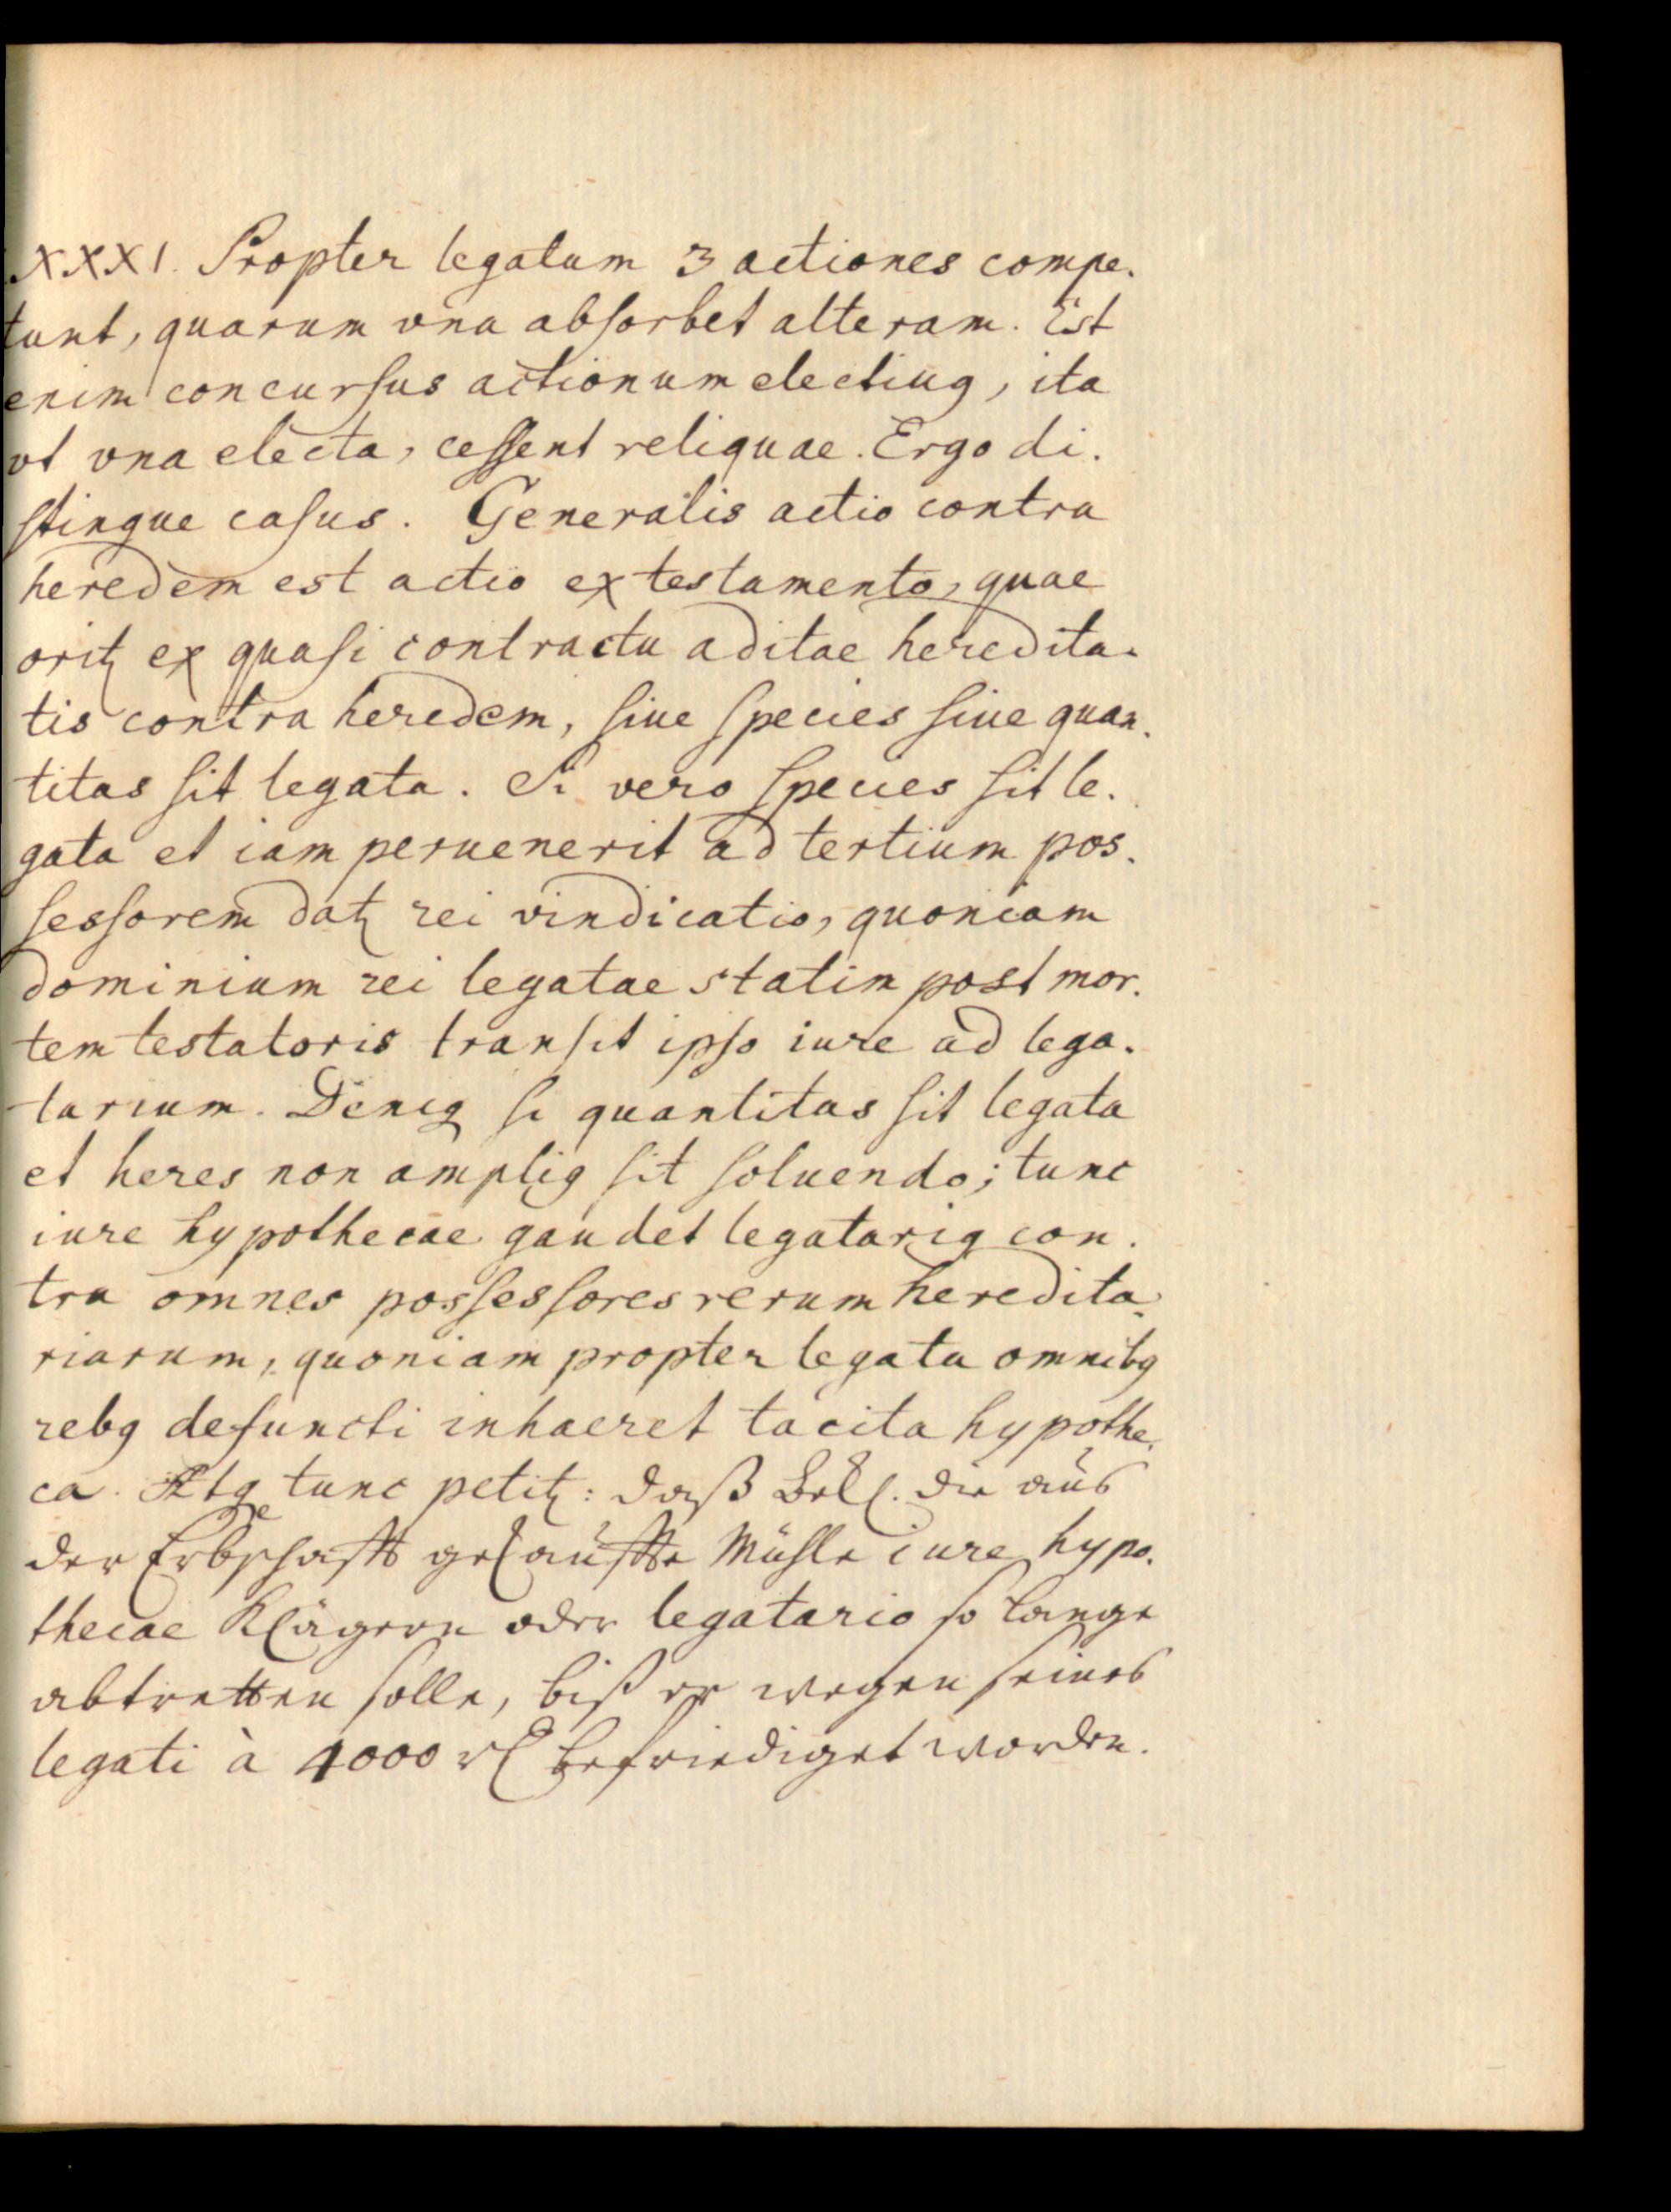 XXXI. Propter legatum 3 actiones compe-
tunt, quarum vna absorbet alteram. Est
enim concursus actionum electiuꝰ, ita
vt vna electa, cessent reliquae. Ergo di-
stingue casus. Generalis actio contra
heredem est actio ex testamento, quae
oritꝭ ex quasi contractu aditae heredita-
tis contra heredem, siue species siue quan-
titas sit legata. Si vero species sit le-
gata et iam peruenerit ad tertium pos-
sessorem datꝭ rei vindicatio, quoniam
dominium rei legatae statim post mor-
tem testatoris transit ipso iure ad lega-
tarium. Deniq si quantitas sit legata
et heres non ampliꝰ sit soluendo; tunc
iure hypothecae gaudet legatariꝰ con-
tra omnes possessores rerum heredita-
riarum, quoniam propter legata omnibꝰ
rebꝰ defuncti inhaeret tacita hypothe-
ca. Atq tunc petitꝭ: daß Bekl. die aus
der Erbschafft gekauffte Mühle iure hypo-
thecae Klägern oder legatario so lange
abtretten solle, biß er wegen seines
legati à 4000 rl befriediget worden.